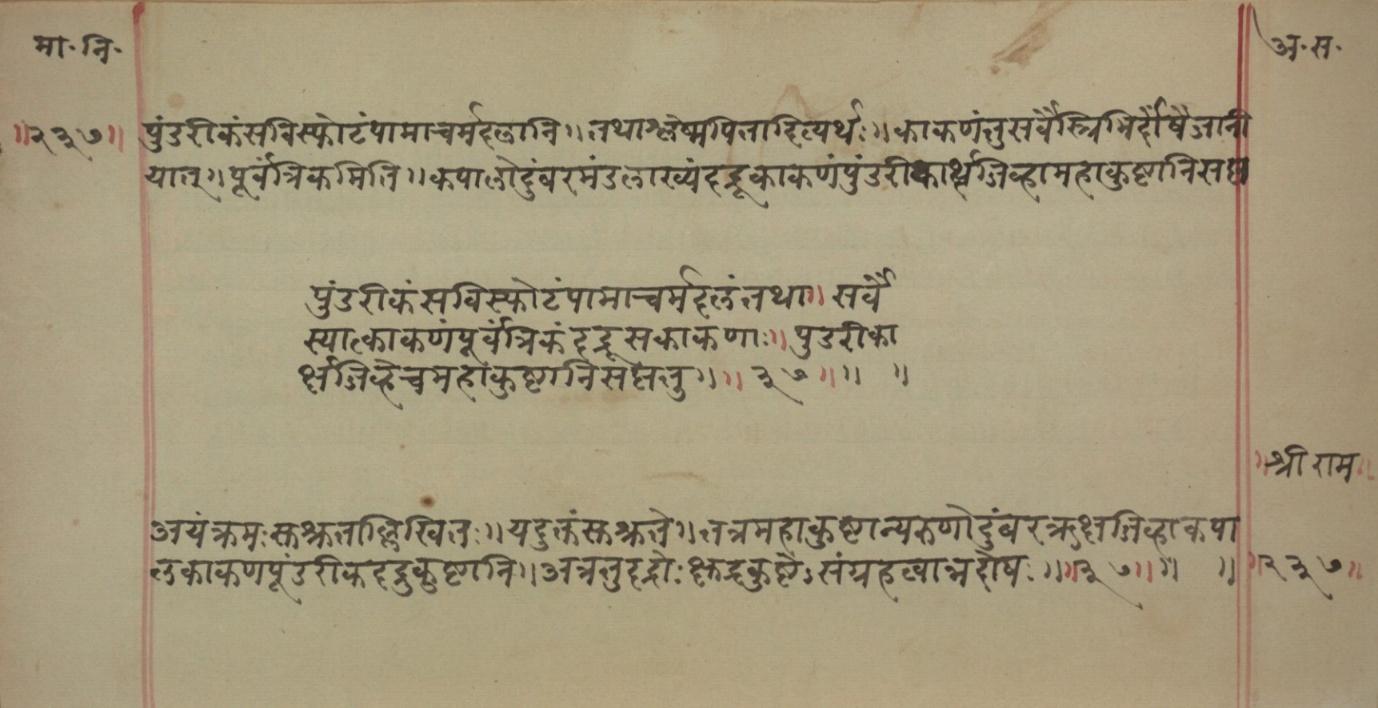 मा॰ नि॰
अ॰ स॰
॥२३७॥ पुंडरीकंसविस्फोटंपामाचर्मदलानि॥ तथाश्लेष्मपित्तादित्यर्थः॥ काकणंतुसर्वैस्त्रिभिर्दोषैर्जानी
यात्॥ पूर्वंत्रिकमिति॥ कपालोदुंबरमंडलाख्यंदद्रूकाकणंपुंडरीकार्क्षजिव्हामहाकुष्टानिसप्त
पुंडरीकंसविस्फोटंपामाचर्मदलंतथा॥ सर्वैः
स्यात्काकणंपूर्वंत्रिकंदद्रूसकाकणाः॥ पुडरीका
र्क्षजिव्हेचमहाकुष्टानिसप्ततु॥ ॥३७॥ ॥ ॥
॥श्री राम॥
अयंक्रमःसुश्रुताल्लिखितः॥ यदुक्तंसुश्रुते॥ तत्रमहाकुष्टान्यरुणोदुंबरऋक्षजिव्हाकपा
लकाकणपूंडरीकदद्रुकुष्टानि॥ अत्रतुदद्रोः क्षुद्रकुष्टैः संग्रहत्वान्नदोषः॥ ॥३७॥ ॥ ॥ ॥२३७॥